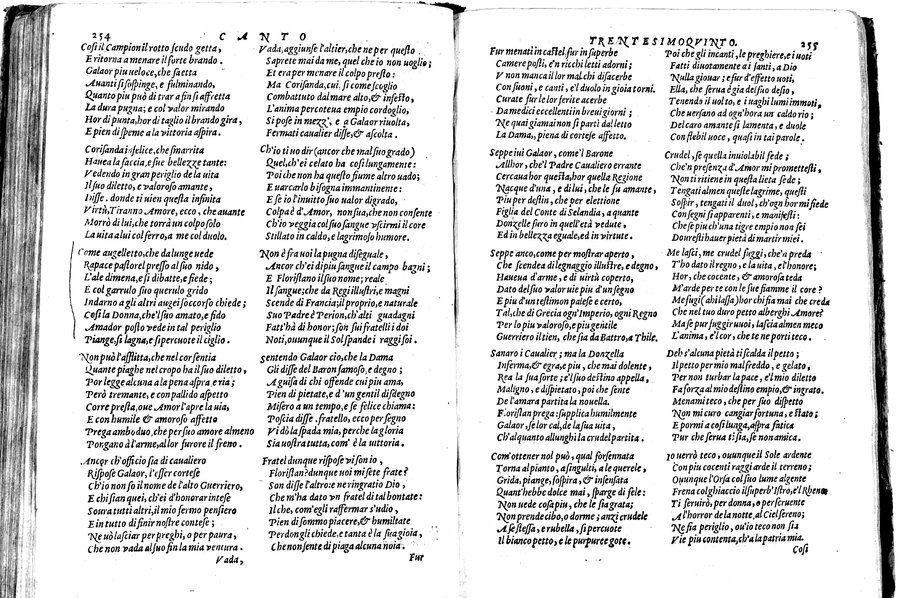 254 CANTO
Così il Campion il rotto scudo getta,
E ritorna a menare il forte brando.
Galaor piu veloce, che saetta
Auanti si sospinge, e fulminando,
Quanto piu può di trar a fin si affretta
La dura pugna; e col valor mirando
Hor di punta, hor di taglio il brando gira,
E pien di speme a la vittoria aspira.
Corisanda infelice, che smarrita
Hauea la faccia, e sue bellezze tante:
Vedendo in gran periglio de la vita
Il suo diletto, e valoroso amante,
Disse. donde ti vien questa infinita
Virtù, Tiranno Amore, ecco, che auante
Morrò di lui, che torrà un colpo solo
La uita a lui col ferro, a me col duolo.
Come augelletto, che da lunge uede
Rapace pastorel presso al suo nido,
L'ale dimena, e si dibatte, e fiede;
E col garrulo suo querulo grido
Indarno a gli altri augei soccorso chiede;
Così la Donna, che'l suo amato, e fido
Amador posto vede in tal periglio
Piange, si lagna, e si percuote il ciglio.
Non può l'afflitta, che nel cor sentia
Quante piaghe nel cropo ha il suo diletto,
Por legge alcuna a la pena aspra, e ria;
Però tremante, e con pallido aspetto
Corre presta, oue Amor l'apre la uia,
E con humile & amoroso affetto
Prega amboduo, che per suo amore almeno
Pongano à l'arme, al lor furore il freno.
Ancor ch'officio sia di caualiero
Rispose Galaor, l'esser cortese
Ch'io non so il nome de l'alto Guerriero,
E chi sian quei, ch'ei d'honorar intese
Soura tutti altri, il mio fermo pensiero
E in tutto di finir nostre contese;
Ne uò lasciar per preghi, o per paura,
Che non vada al suo fin la mia ventura.
Vada,
Vada, aggiunse l'altier, che ne per questo
Saprete mai da me, quel che io non uoglio;
Et era per menare il colpo presto:
Ma Corisanda, cui, sì come scoglio
Combattuto dal mare alto, & infesto,
L'anima percotea empio cordoglio,
Si pose in mezz', e a Galaor riuolta,
Fermati caualier disse, & ascolta.
Ch'io ti uo dir (ancor che mal suo grado)
Quel, ch'ei celato ha così lungamente:
Poi che non ha questo fiume altro uado;
E uarcarlo bisogna immantinente:
E se io l'inuitto suo ualor digrado,
Colpa è d'Amor, non sua, che non consente
Ch'io veggia col suo sangue vscirmi il core
Stillato in caldo, e lagrimoso humore.
Non è fra uoi la pugna diseguale,
Ancor ch'ei di piu sangue il campo bagni;
E Floristano il suo nome; reale
Il sangue; che da Regi illustri, e magni
Scende di Francia; il proprio, e naturale
Suo Padre è Perion, ch'alti guadagni
Fatt'hà di honor; son sui fratelli i doi
Noti, ouunque il Sol spande i raggi soi.
Sentendo Galaor ciò, che la Dama
Gli disse del Baron famoso, e degno;
A guisa di chi offende cui piu ama,
Pien di pietate, e d'un gentil disdegno
Misero a un tempo, e se felice chiama:
Poscia disse. fratello, ecco per segno
Vi dò la spada mia, perche la gloria
Sia uostra tutta, com' è la uittoria.
Fratel dunque rispose von io,
Floristan? dunque uoi mi sete frate?
Son disse l'altro: e ne ringratio Dio,
Che m'ha dato vn fratel di tal bontate:
Il che, com'egli raffermar s'udio,
Pien di sommo piacere, & humiltate
Perdon gli chiede. e tanta è la sua gioia,
Che non sente di piaga alcuna noia.
Fur
TRENTESIMOQVINTO. 255
Fur menati in castel. fur in superbe
Camere posti, e'n ricchi letti adorni;
V non manca il lor mal chi disacerbe
Con suoni, e canti, e'l duolo in gioia torni.
Curate fur le lor ferite acerbe
Da medici eccellenti in breui giorni;
Ne quai giamai non si partì dal letto
La Dama, piena di cortese affetto.
Seppe iui Galaor, come'l Barone
Allhor, che'l Padre Caualiero errante
Cercaua hor questa, hor quella Regione
Nacque d'una, e di lui, che le fu amante,
Piu per destin, che per elettione
Figlia del Conte di Selandia, a quante
Donzelle furo in quell'età vedute,
Ed in bellezza eguale, ed in virtute.
Seppe anco, come per mostrar aperto,
Che scendea di legnaggio illustre, e degno,
Faceua d'arme, e di uirtù coperto,
Dato del suo valor uie piu d'un segno
E piu d'un testimon palese e certo,
Tal, che di Grecia ogn'Imperio, ogni Regno
Per lo piu valoroso, e piu gentile
Guerriero il tien, che sia da Battro, a Thile.
Sanaro i Caualier; ma la Donzella
Inferma, & egra, e piu, che mai dolente,
Rea la sua sorte; e'l suo destino appella,
Maligno, e dispietato, poi che sente
De l'amara partita la nouella.
Floristan prega: supplica humilmente
Galaor, se lor cal, de la sua uita,
Ch'alquanto allunghi la crudel partita.
Com'ottener nol può, qual forsennata
Torna al pianto, a singulti, a le querele,
Grida, piange, sospira, & insensata
Quant'hebbe dolce mai, sparge di fele:
Non uede cosa piu, che le sia grata;
Non prende cibo, o dorme; anzi crudele
A se stessa, e rubella, si percuote
Il bianco petto, e le purpuree gote.
Poi che gli incanti, le preghiere, e i uoti
Fatti diuotamente a i santi, a Dio
Nulla giouar; e fur d'effetto uoti,
Ella, che serua è gia del suo desio,
Tenendo il uolto, e i uaghi lumi immoti,
Che uersano ad ogn'hora un caldo rio;
Del caro amante si lamenta, e duole
Con flebil uoce, quasi in tai parole.
Crudel, se quella inuiolabil fede;
Ch'n presenza d'Amor mi promettesti,
Non ti ritiene in questa lieta sede;
Tengati almen queste lagrime, questi
Sospir, tengati il duol, ch'ogn'hor mi fiede
Con segni sì apparenti, e manifesti:
Che se piu ch'una tigre empio non sei
Douresti hauer pietà di martir miei.
Me lasci, me crudel fuggi, che'n preda
T'ho dato il regno, e la uita, e l'honore;
Hor, che cocente, & amorosa teda
M'arde per te con le sue fiamme il core?
Me fugi (ahi lassa) hor chi fia mai che creda
Che nel tuo duro petto alberghi Amore?
Ma se pur fuggir uuoi, lascia almen meco
L'anima, e'l cor, che te ne porti teco.
Deh s'alcuna pietà ti scalda il petto;
Il petto per mio mal freddo, e gelato,
Per non turbar la pace, e'l mio diletto
Fa forza al mio destino empio, & ingrato.
Menami teco, che per suo dispetto
Non mi curo cangiar fortuna, e stato;
E pormi a così lunga, aspra fatica
Pur che serua ti sia, se non amica.
Io uerrò teco, ouunque il Sole ardente
Con piu cocenti raggi arde il terreno;
Ouunque l'Orsa col suo lume algente
Frena col ghiaccio il superb'Istro, e'l Rheno
Ti seruirò, per donna, o per seruente
A l'horror de la notte, al Ciel sereno;
Ne fia periglio, ou'io teco non sia
Vie piu contenta, ch'a la patria mia.
Così